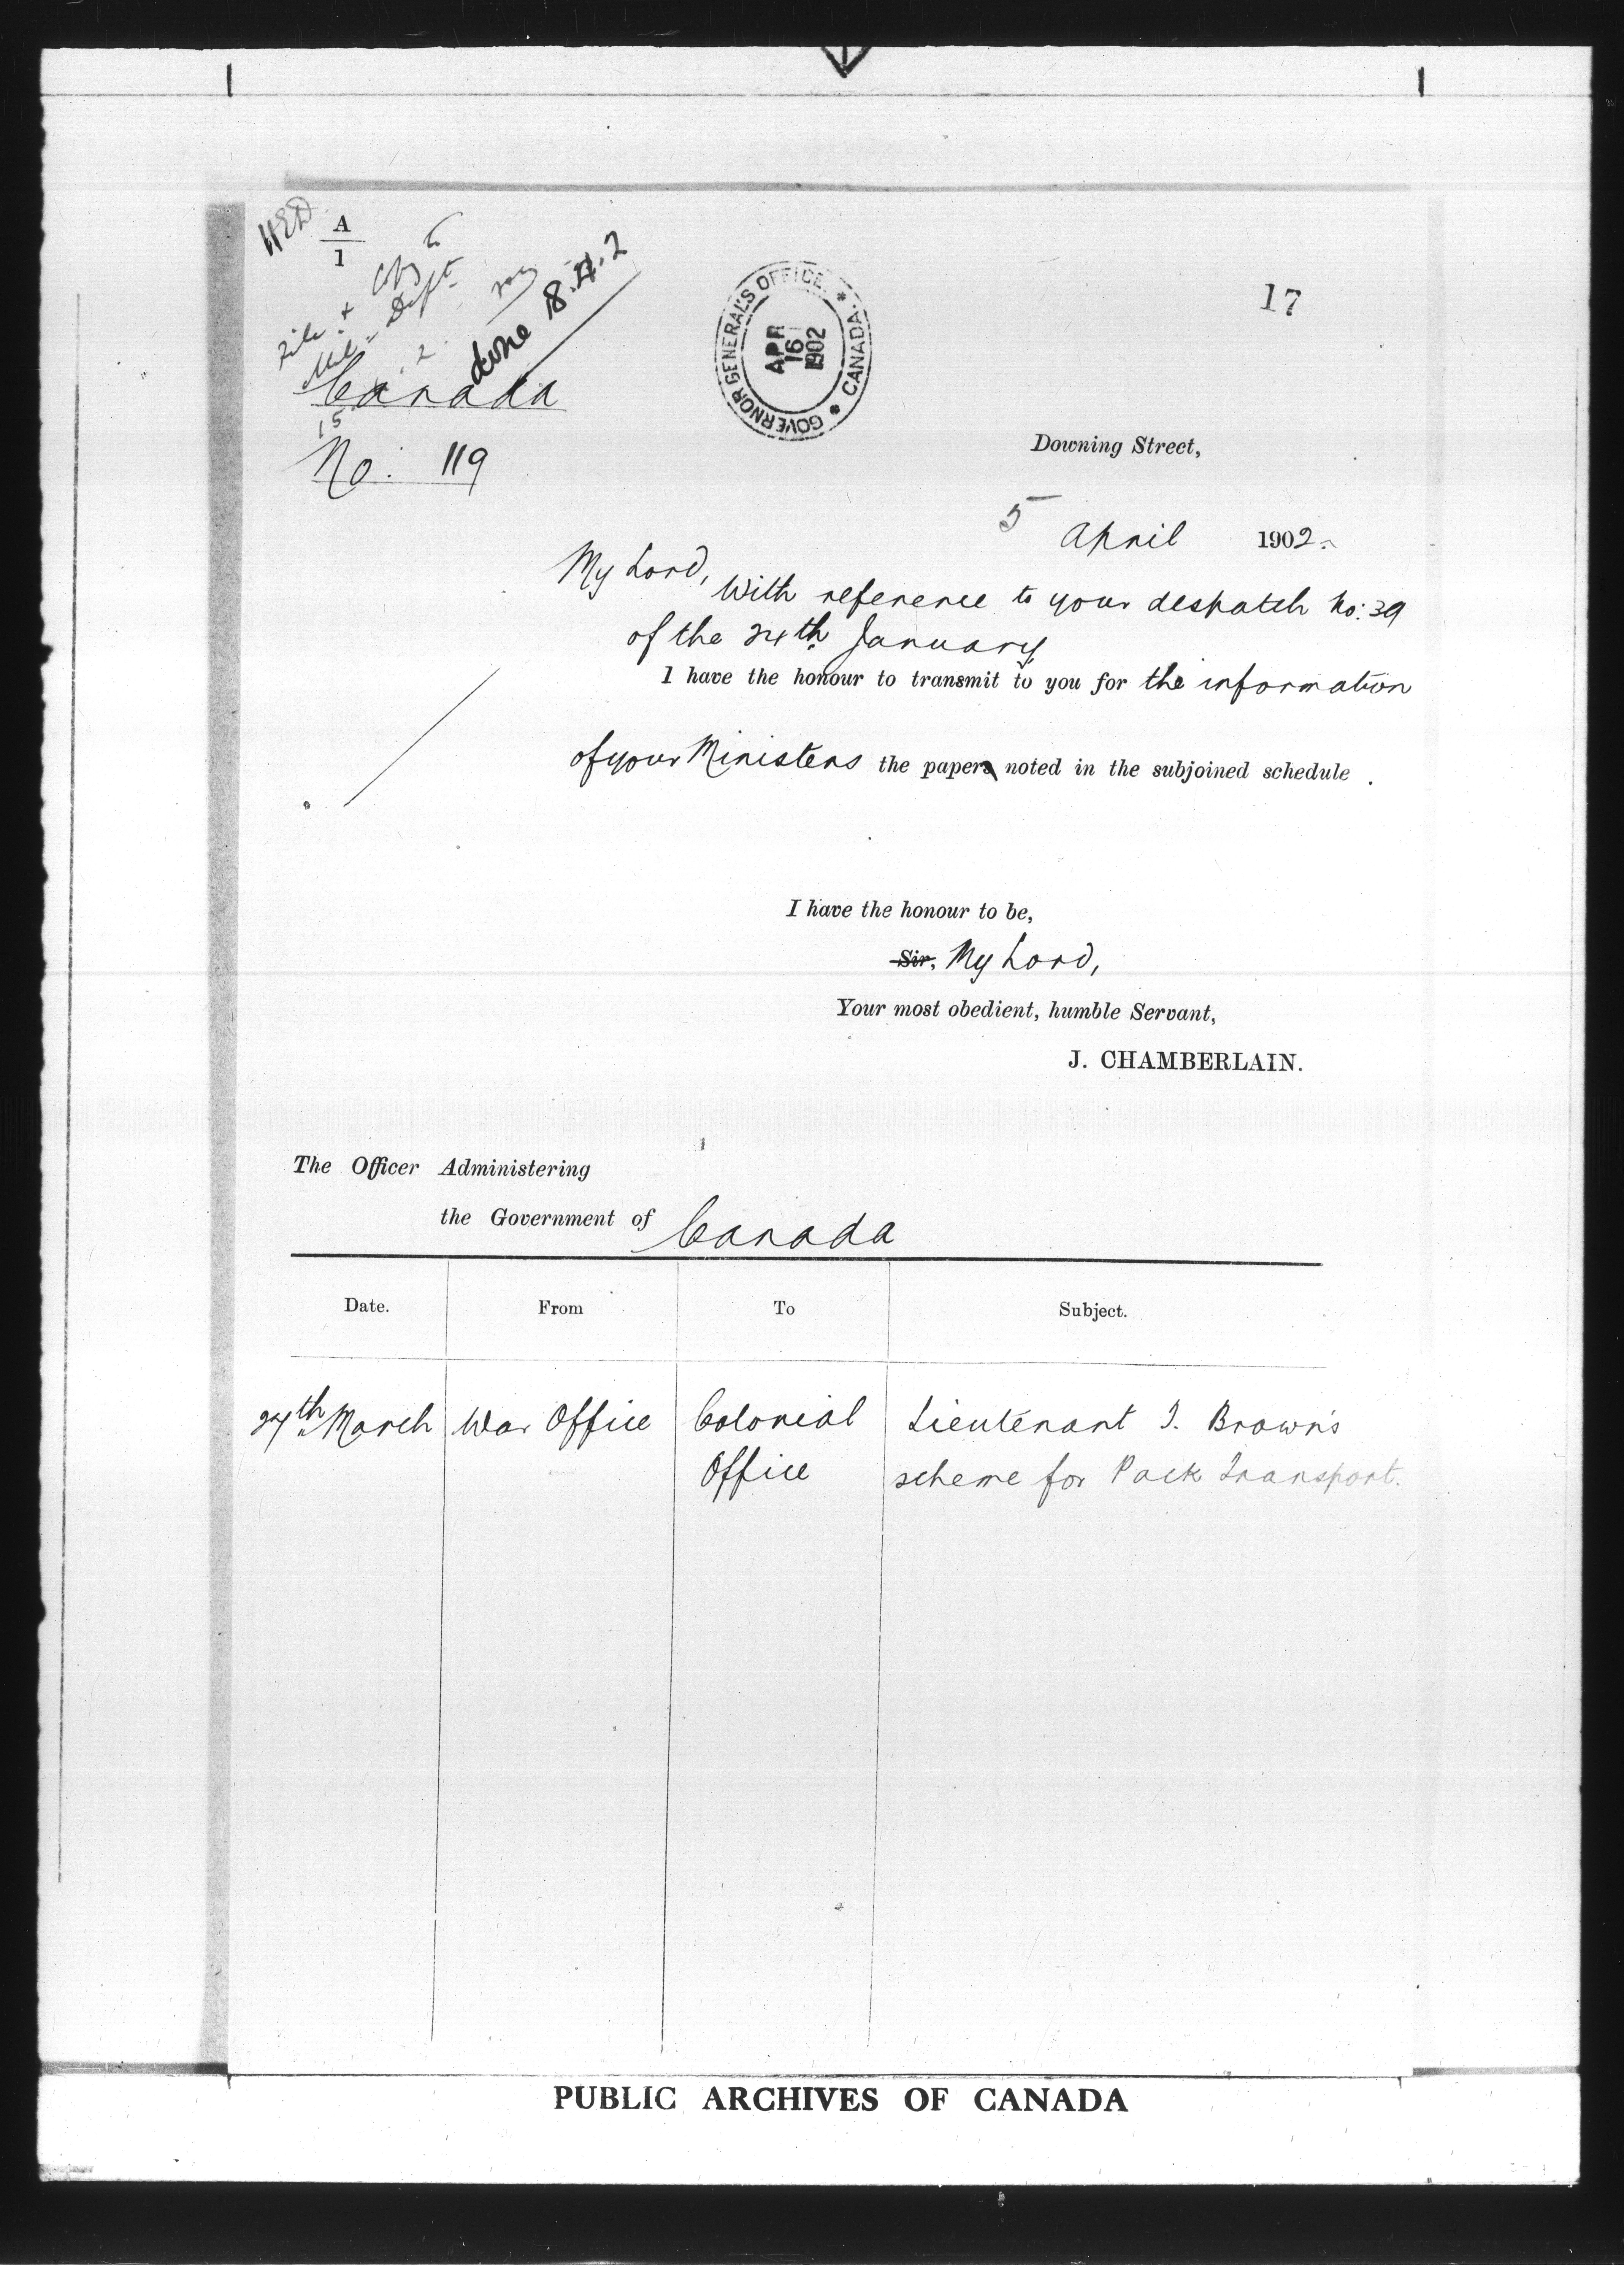 HED
A
1
File & Copy to
Mil. Dept.
done 18.4.2
17
GOVERNOR GENERAL'S OFFICE * CANADA *
APR
16
1902
Canada
15
No: 119
Downing Street,
5 April 1902.
My Lord,
With reference to your despatch No: 39
of the 24th January
I have the honour to transmit to you for the information
of your Ministers the paper noted in the subjoined schedule.
I have the honour to be,
Sir, My Lord,
Your most obedient, humble Servant,
J. CHAMBERLAIN.
The Officer Administering
the Government of Canada
Date. From To Subject.
March War Office Colonial Lieutenant J. Brown's
Office scheme for Pack Transport.
PUBLIC ARCHIVES OF CANADA